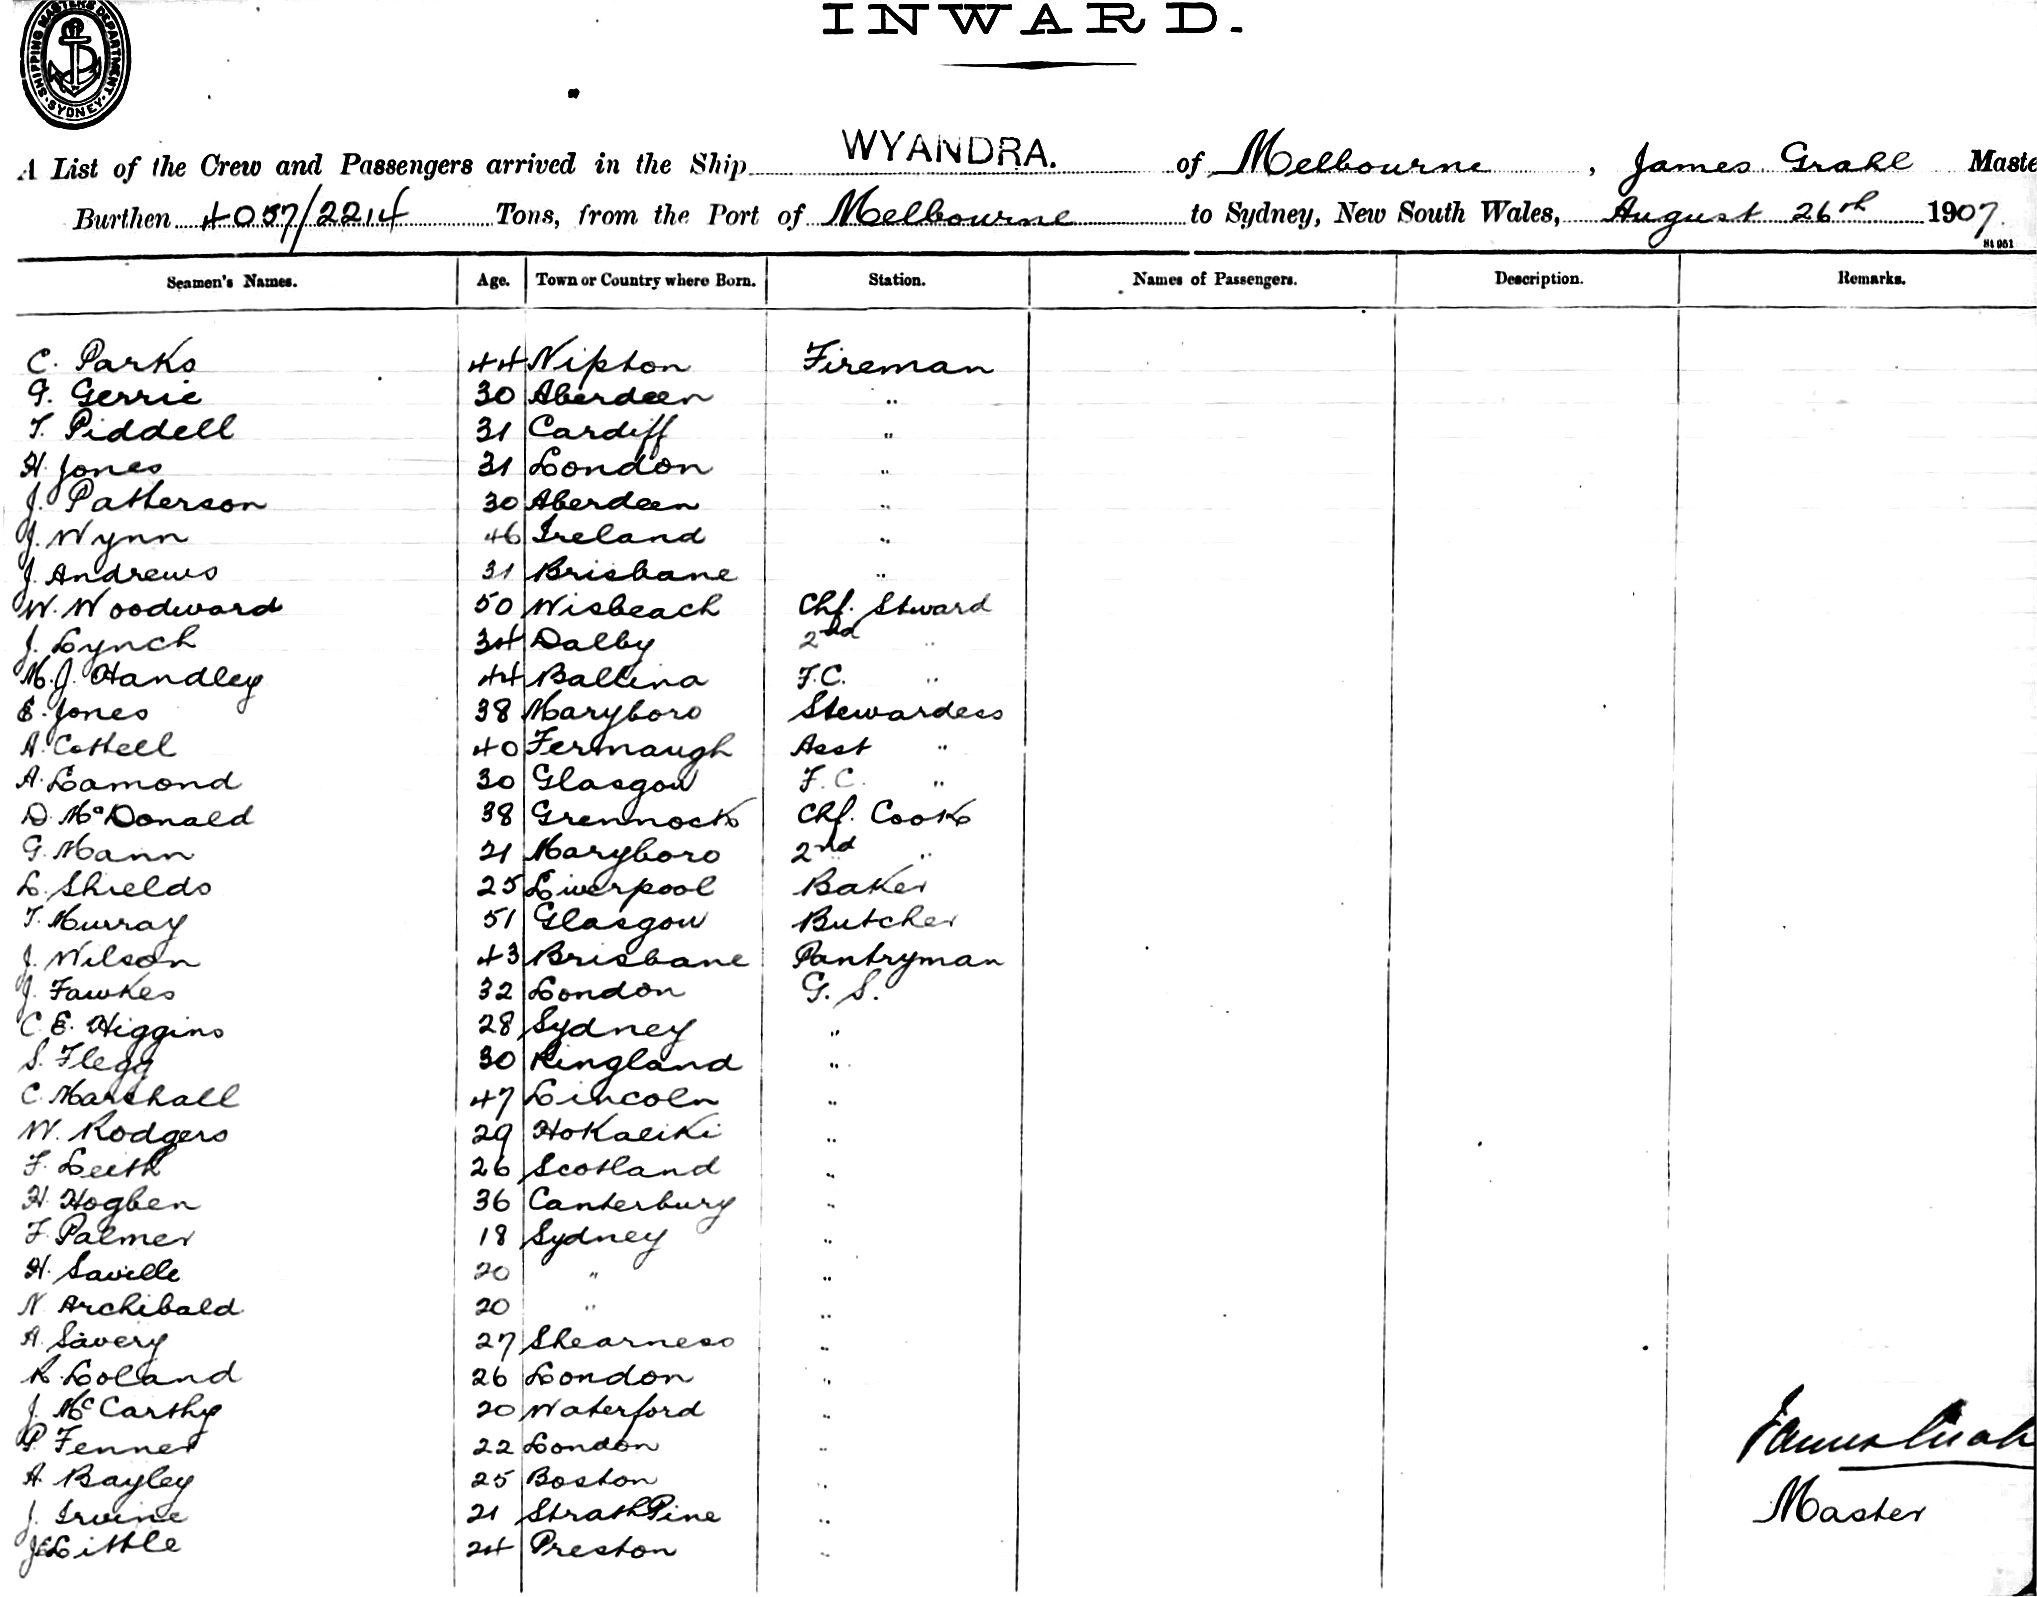 SHIPPING MASTERS DEPARTMENT SYDNEY
INWARD.
A List of the Crew and Passengers arrived in the Ship WYANDRA. of Melbourne, James Grahl Maste
Burthen 4057/2214 Tons, from the Port of Melbourne to Sydney, New South Wales, August 26th 1907.
Seamen's Names. Age. Town or Country where Born. Station. Names of Passengers. Description. Remarks.
C. Parks 44 Nipton Fireman
G. Gerrie 30 Aberdeen "
T. Piddell 31 Cardiff "
H. Jones 31 London "
J. Patterson 30 Aberdeen "
J. Wynn 46 Ireland "
J. Andrews 31 Brisbane "
W. Woodward 50 Wisbeach Chf. Steward
J. Lynch 34 Dalby 2nd "
M. J. Handley 44 Ballina F.C. "
E. Jones 38 Maryboro Stewardess
A. Cottell 40 Fermaugh Asst "
A. Lamond 30 Glasgow F.C. "
D. McDonald 38 Grennock Chf. Cook
G. Mann 21 Maryboro 2nd "
L. Shields 25 Liverpool Baker
T. Murray 51 Glasgow Butcher
J. Wilson 43 Brisbane Pantryman
J. Fawkes 32 London G. S.
C. E. Higgins 28 Sydney "
S. Flegg 30 Ringland "
C. Marshall 47 Lincoln "
W. Rodgers 29 Hokaliki "
F. Leith 26 Scotland "
H. Hogben 36 Canterbury "
F. Palmer 18 Sydney "
H. Saville 20 " "
N. Archibald 20 " "
A. Savery 27 Shearness "
R. Loland 26 London "
J. McCarthy 20 Waterford "
P. Fenner 22 London "
A. Bayley 25 Boston "
J. Irvine 21 StrathPine "
J. Little 24 Preston "
James Grahl
Master